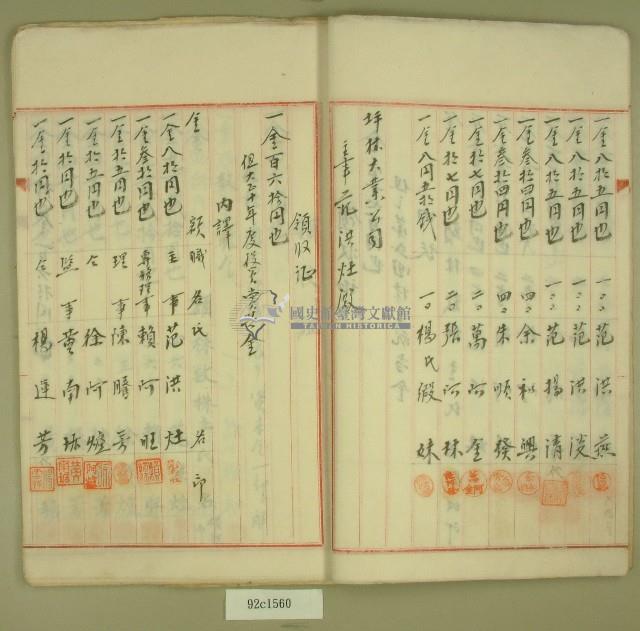 一金八拾五円也 一〇〇 范洪燕
一金八拾五円也 一〇〇 范洪淡
一金八拾五円也 一〇〇 范揚清
一金叁拾四円也 四〇 余和興
一金叁拾四円也 四〇 朱順發
一金拾七円也 二〇 萬阿金
一金拾七円也 二〇 張阿珠
一金八円五拾錢 一〇 楊氏緞妹
坪林大業公司
主事 范洪灶殿
領收証
一金百六拾円也
但大正十年度役員賞与金
內譯
金額 職名 氏名 印
一金八拾円也 主事 范洪灶
一金叁拾円也 專務理事 賴阿旺
一金拾五円也 理事 陳騰芳
一金拾五円也 仝 徐阿爐
一金拾円也 監事 黃南球
一金拾円也 仝 楊連芳
國史館臺灣文獻館
TAIWAN HISTORICA
92c1560